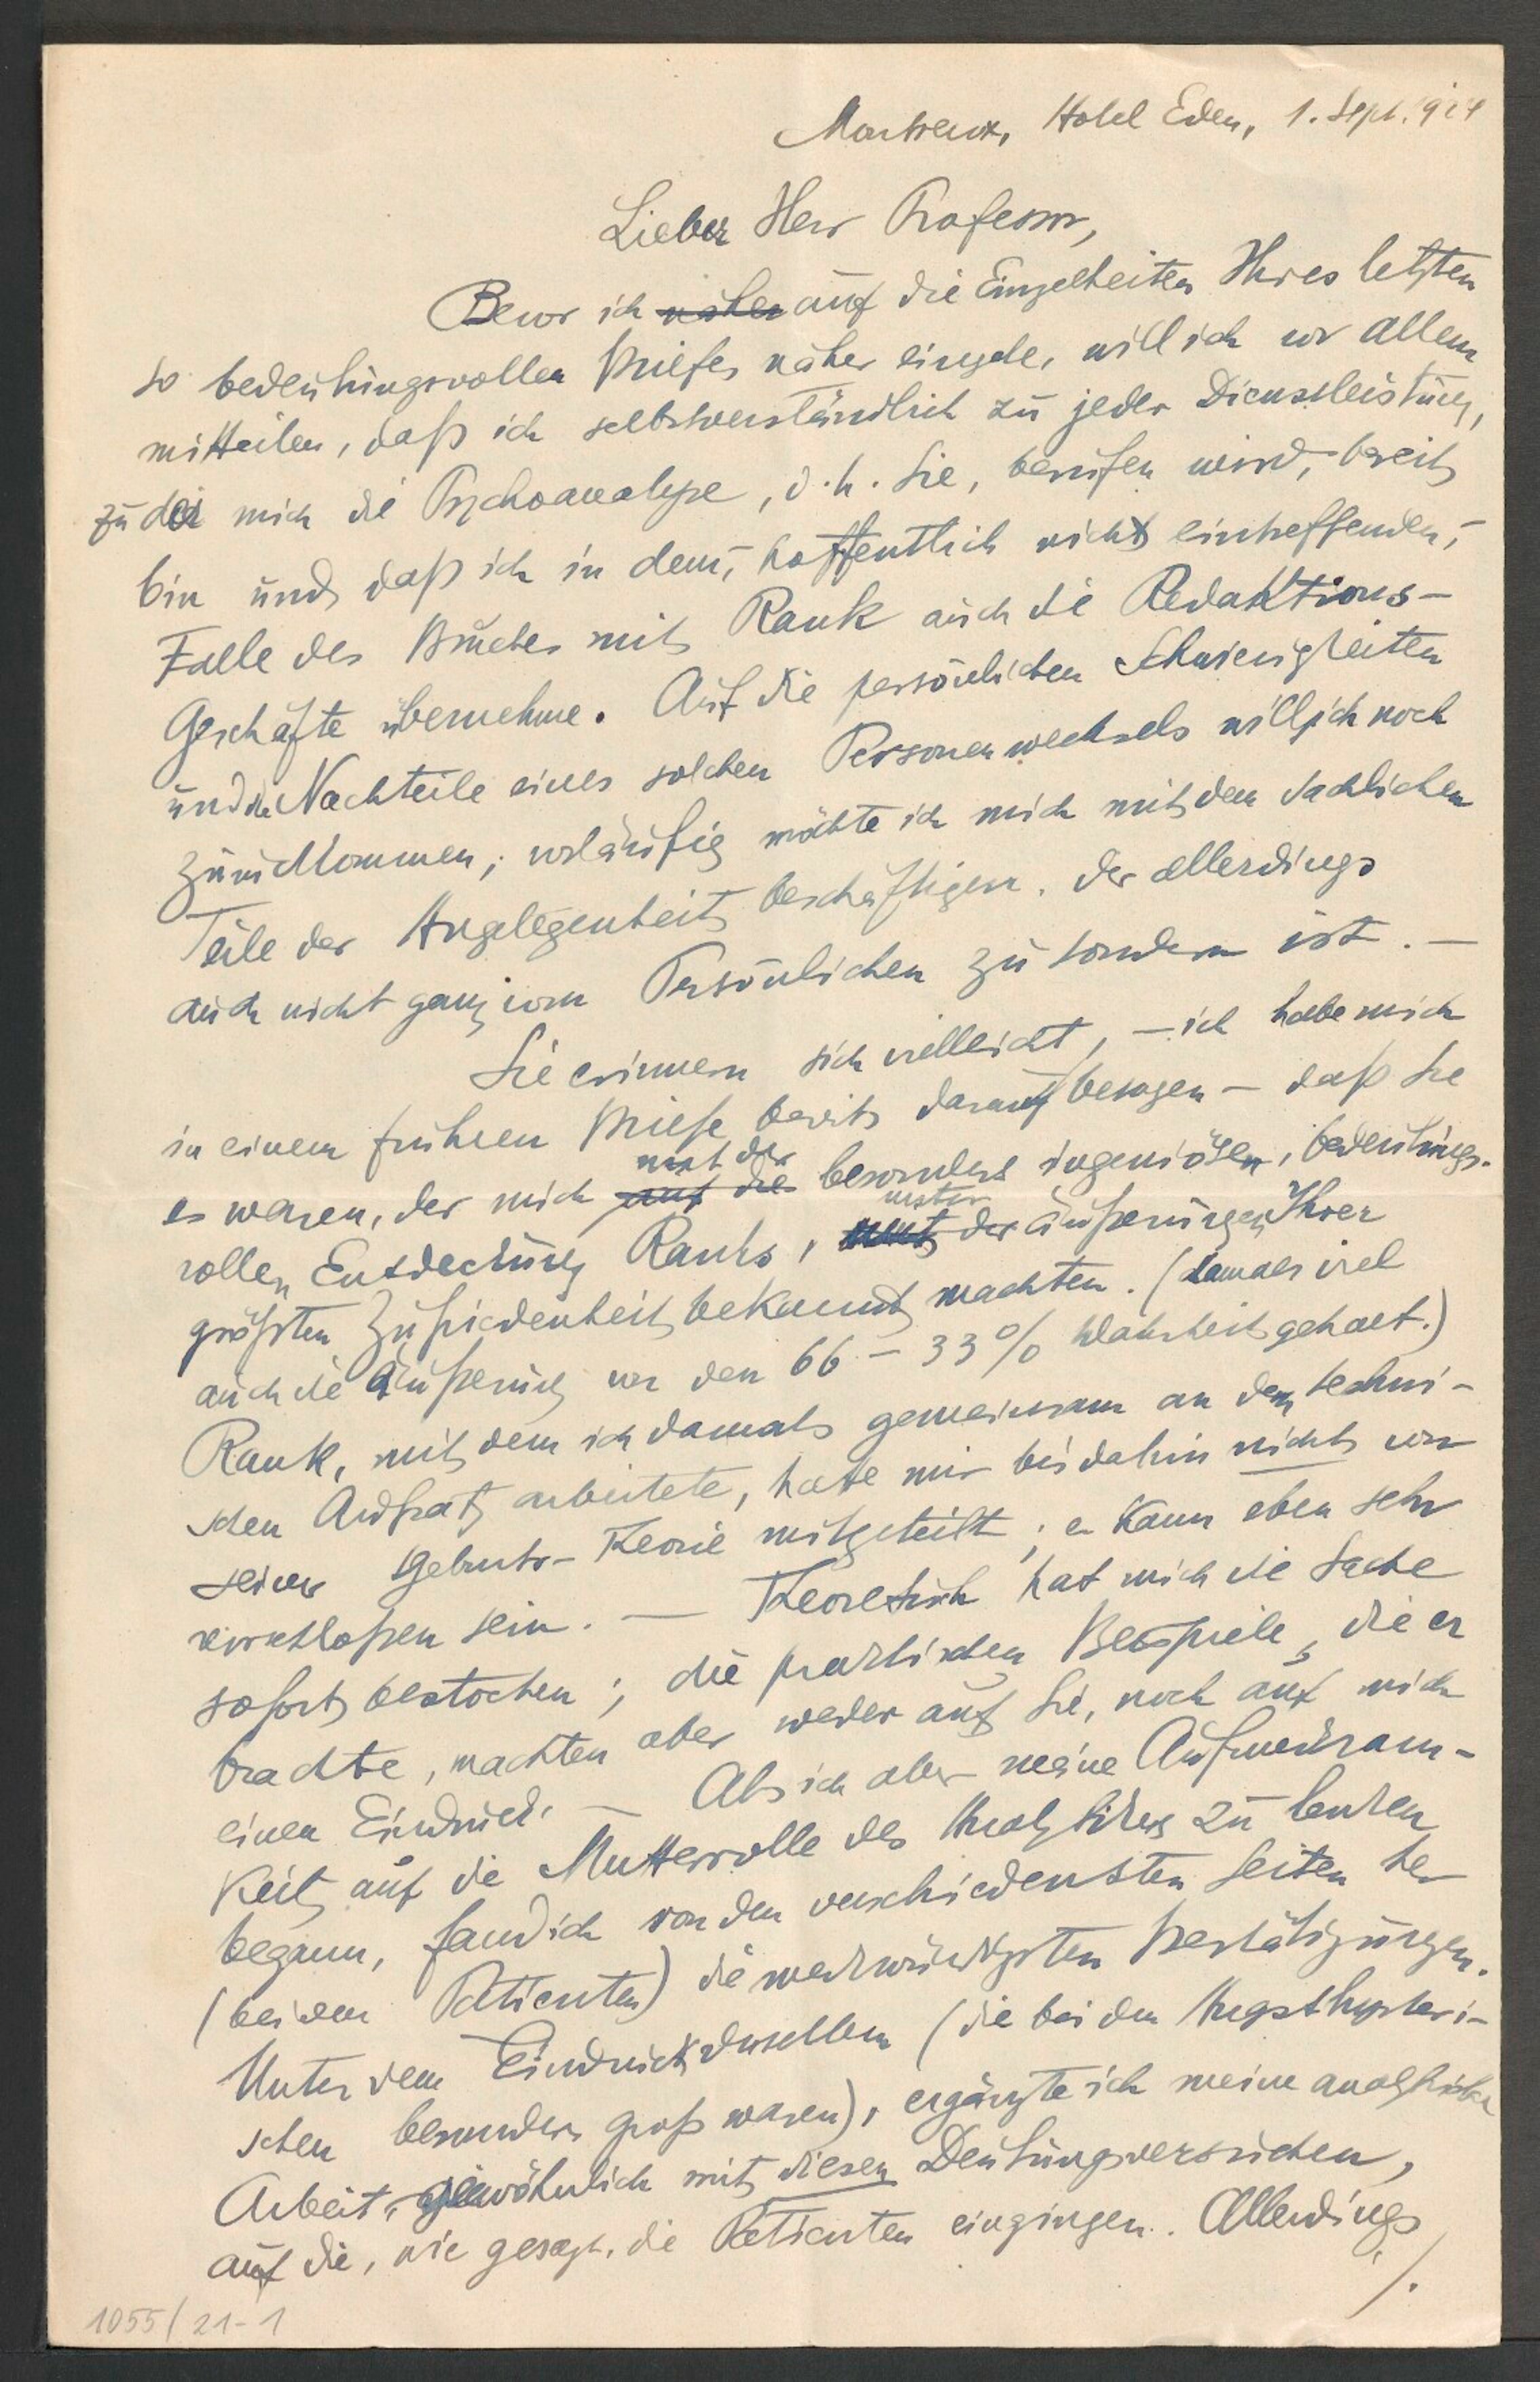 Montreux, Hotel Eden, 1. Sept. 924
Lieber Herr Professor,
Bevor ich näher auf die Einzelheiten Ihres letzten
so bedeutungsvollen Briefes näher eingehe, will ich vor allem
mitteilen, daß ich selbstverständlich zu jeder Dienstleistung,
zu der mich die Psychoanalyse, d.h. Sie, berufen wird, bereit
bin und daß ich in dem, hoffentlich nicht eintreffenden,
Falle des Bruches mit Rank auch die Redaktions-
Geschäfte übernehme. Auf die persönlichen Schwierigkeiten
und die Nachteile eines solchen Personenwechsels will ich noch
zurückkommen; vorläufig möchte ich mich mit dem sachlichen
Teile der Angelegenheit beschäftigen, der allerdings
auch nicht ganz vom Persönlichen zu sondern ist. —
Sie erinnern sich vielleicht, — ich habe mich
in einem frühren Briefe bereits darauf bezogen — daß Sie
es waren, der mich auf die mit der besonders ingeniösen, bedeutungs-
vollen Entdeckung Ranks, mit unter der Äußerungen Ihrer
größten Zufriedenheit bekannt machten. (Damals fiel
auch die Äußerung von den 66 – 33% Wahrheitsgehalt.)
Rank, mit dem ich damals gemeinsam an dem techni-
schen Aufsatz arbeitete, hatte mir bis dahin nichts von
seiner Geburts-Theorie mitgeteilt; er kann eben sehr
verschloßen sein. — Theoretisch hat mich die Sache
sofort bestochen; die praktischen Beispiele, die er
brachte, machten aber weder auf Sie, noch auf mich
einen Eindruck. — Als ich aber meine Aufmerksam-
keit auf die Mutterrolle des Analytikers zu lenken
begann, fand ich von den verschiedensten Seiten her
(bei den Patienten) die merkwürdigsten Bestätigungen.
Unter dem Eindruck derselben (die bei den Angsthysteri-
schen besonders groß waren), ergänzte ich meine analytische
Arbeit gewöhnlich mit diesen Deutungsversuchen,
auf die, wie gesagt, die Patienten eingingen. Allerdings
./.
1055/21-1